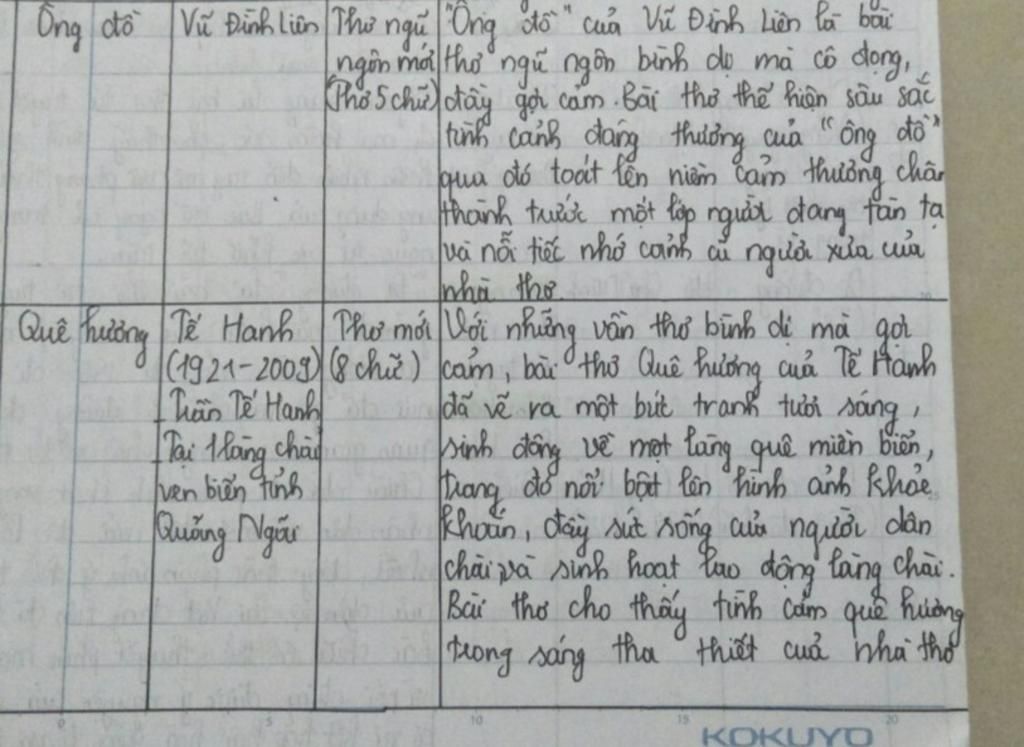 Ông đồ
Vũ Đình Liên
Thơ ngũ
ngôn mới
(Thơ 5 chữ)
"Ông đồ" của Vũ Đình Liên là bài
thơ ngũ ngôn bình dị mà cô đọng,
đầy gợi cảm. Bài thơ thể hiện sâu sắc
tình cảnh đáng thương của "ông đồ"
qua đó toát lên niềm cảm thương chân
thành trước một lớp người đang tàn tạ
và nỗi tiếc nhớ cảnh cũ người xưa của
nhà thơ.
Quê hương
Tế Hanh
(1921-2009)
Trần Tế Hanh
Tại 1 làng chài
ven biển tỉnh
Quãng Ngãi
Thơ mới
(8 chữ)
Với những vần thơ bình dị mà gợi
cảm, bài thơ Quê hương cuả Tế Hanh
đã vẽ ra một bức tranh tươi sáng,
sinh động về một làng quê miền biển,
trong đó nổi bật lên hình ảnh khỏe
khoắn, đầy sức sống của người dân
chài và sinh hoạt lao động làng chài.
Bài thơ cho thấy tình cảm quê hương
trong sáng tha thiết cuả nhà thơ
0 5 10 15 20
KOKUYO